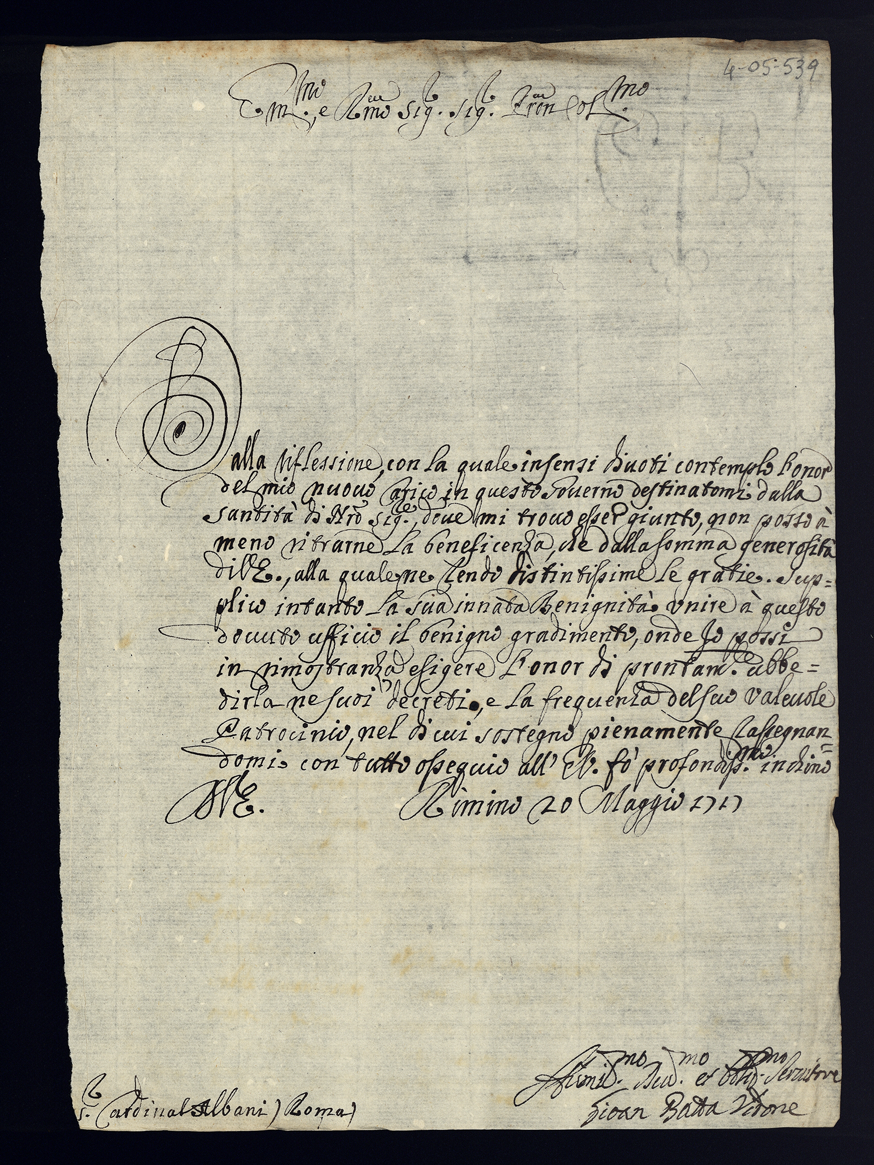 4-05-539
Em.mo, e R.mo Sig. Sig. Pron Col.mo
Dalla riflessione, con la quale in sensi divoti contemplo l'onor
del mio nuovo carico in questo Governo destinatomi dalla
Santità di Nro Sig.re, dove mi trovo esser giunto, non posso à
meno ritrarne la beneficenza, che dalla somma generosità
di V.E., alla quale ne rendo distintissime le gratie. Sup=
plico intanto la sua innata Benignità unire à questo
dovuto ufficio il benigno gradimento, onde Io possi
in rimostranza esigere l'onor di prontam.e ubbe=
dirla ne suoi decreti, e la frequenza del suo valevole
Patrocinio, nel di cui sostegno pienamente rassegnan=
domi con tutto ossequio all' E.V. fò profondiss.mo inchino
D.V.E. Rimino 20 Maggio 1717
Humil.mo Dev.mo et Obblig.mo Servitore
Gioan Batta
S.r Cardinal Albani) Roma)